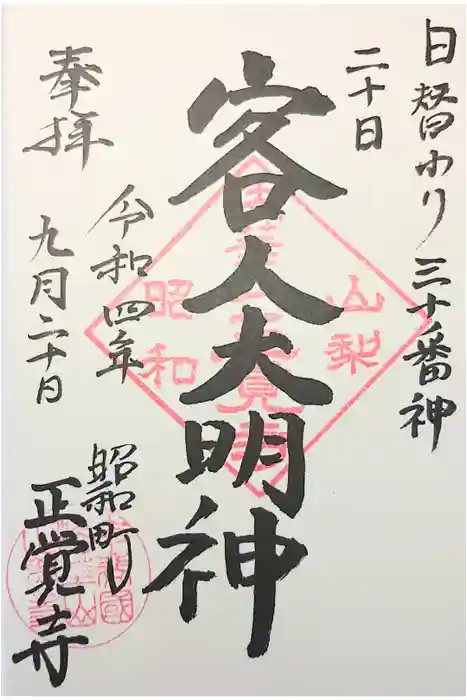 日替わり 三十番神
二十日
客人大明神
奉拝
令和四年
九月二十日
昭和町
正覚寺
山梨
昭和